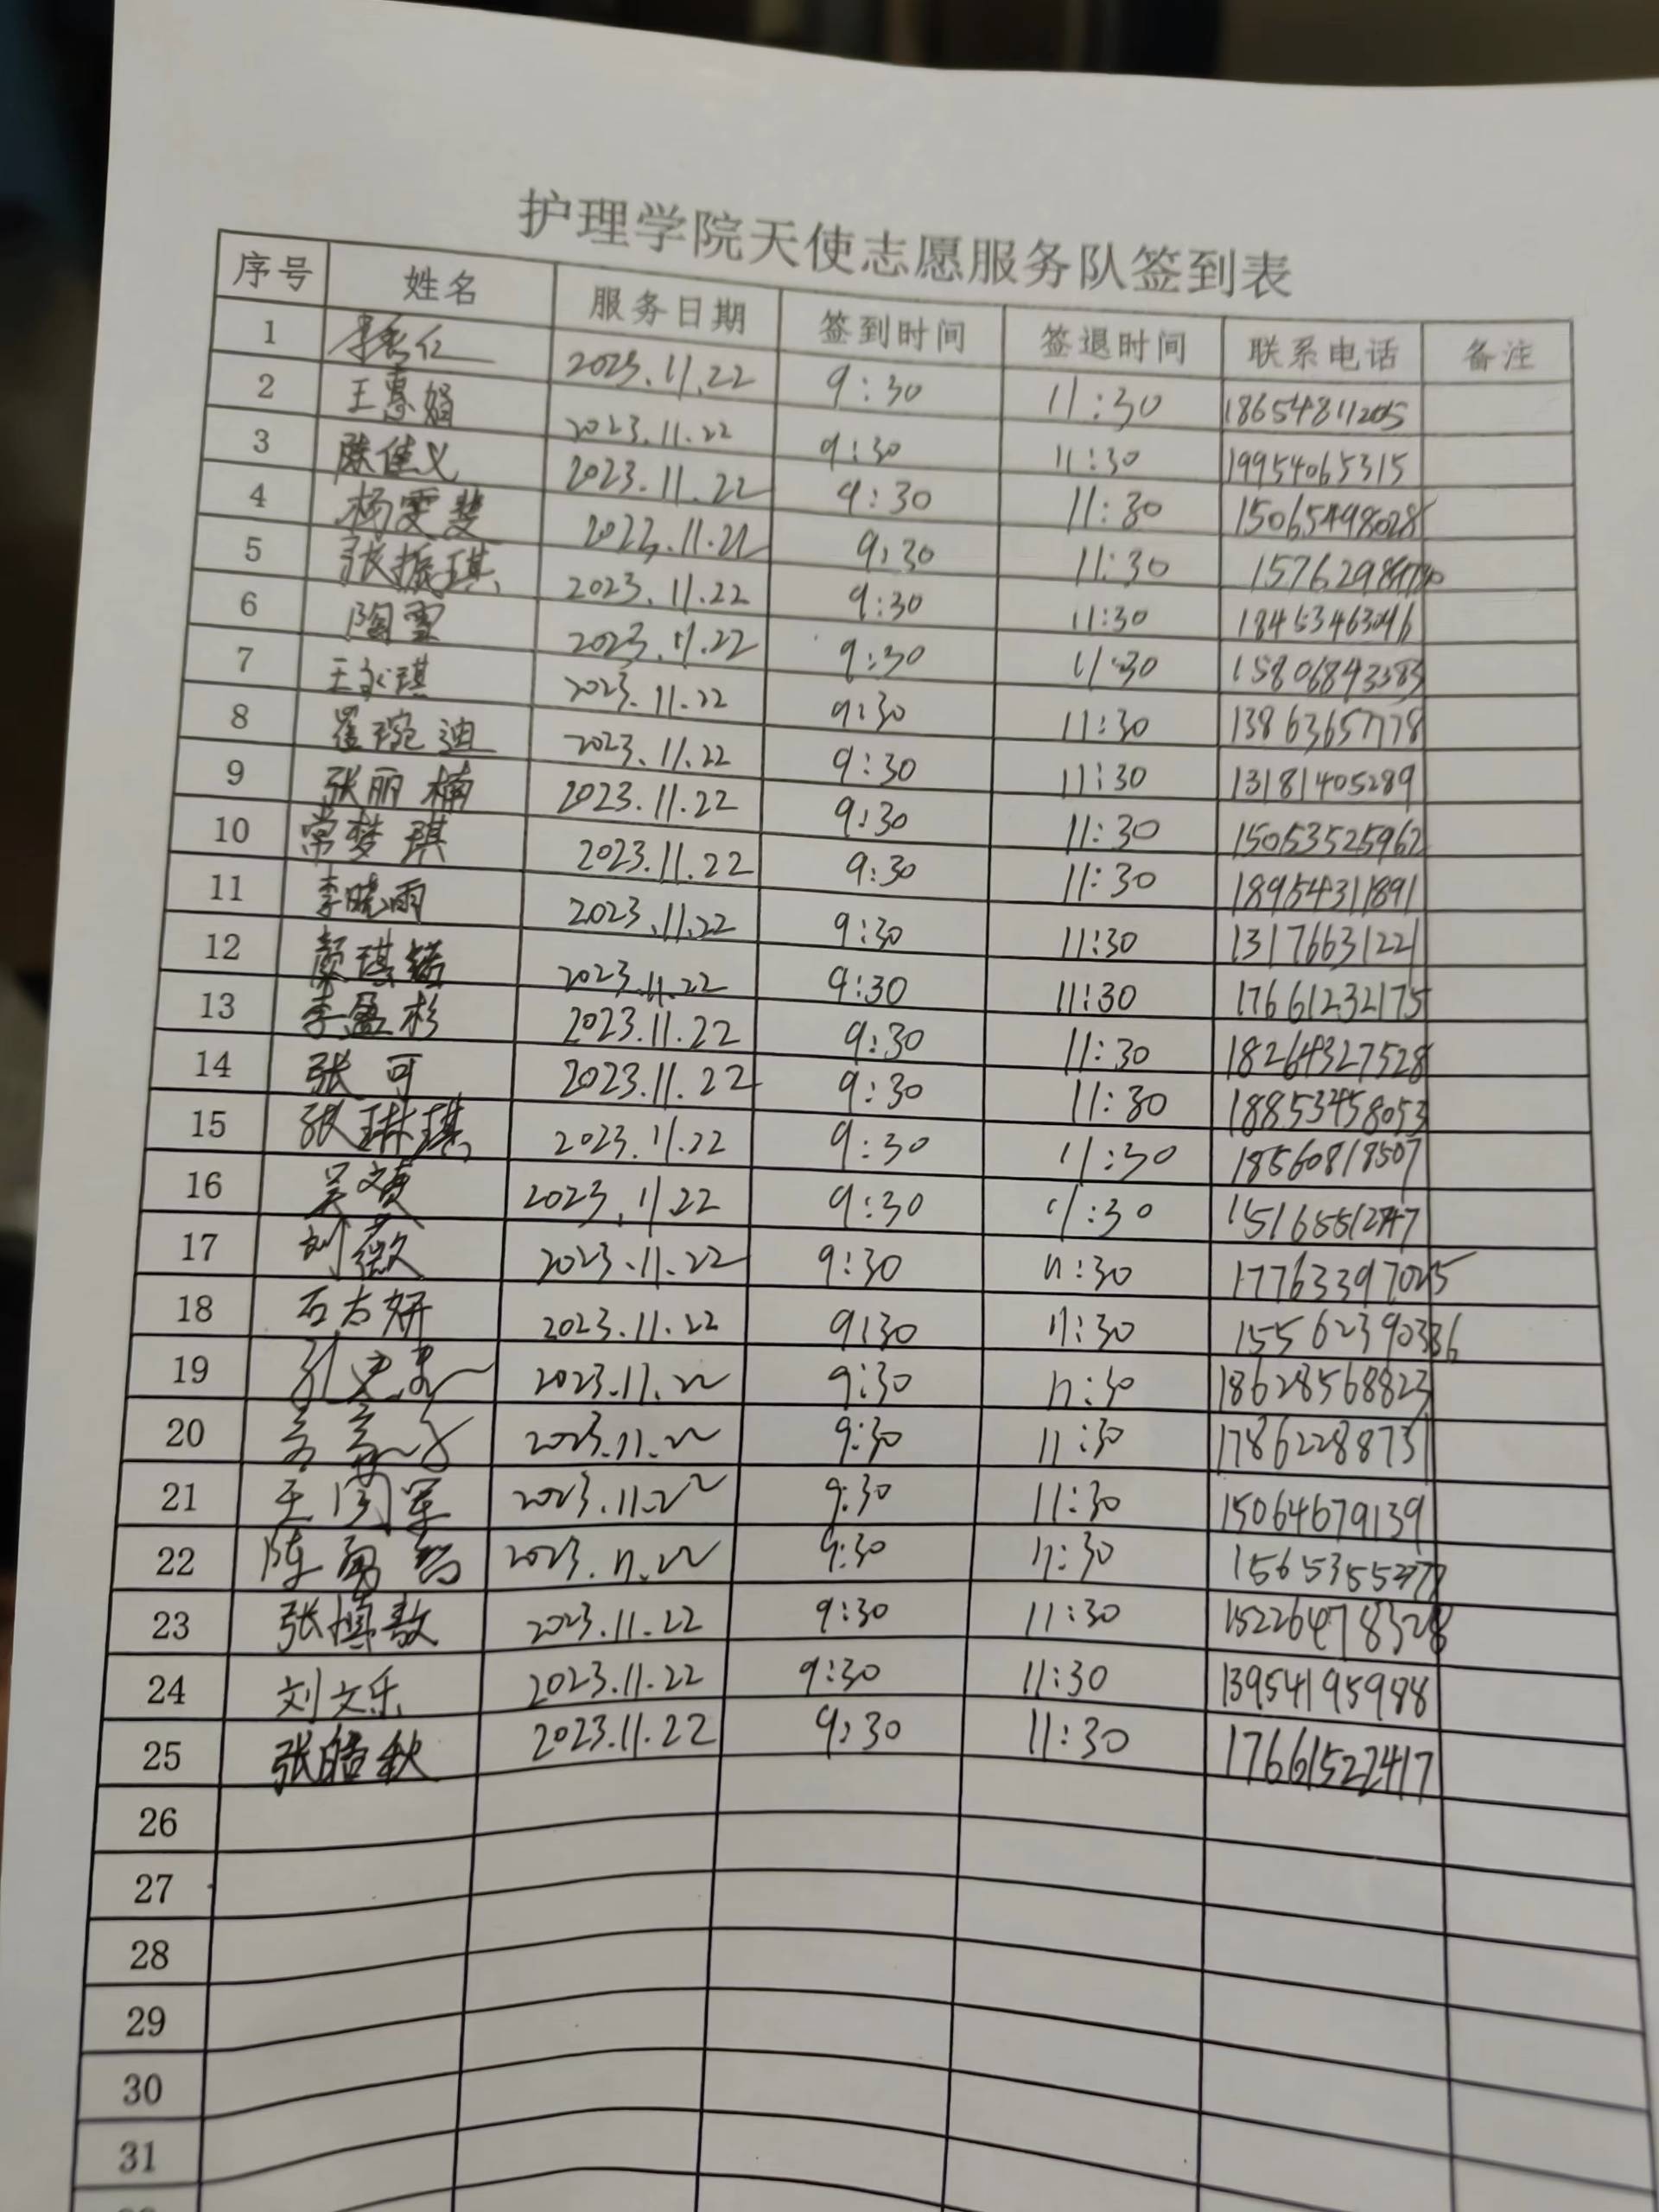 护理学院天使志愿服务队签到表
序号 姓名 服务日期 签到时间 签退时间 联系电话 备注
1 2023.11.22 9:30 11:30 18654811205
2 王惠娟 2023.11.22 9:30 11:30 19954065315
3 陈佳义 2023.11.22 9:30 11:30 15065498028
4 杨雯斐 2023.11.22 9:30 11:30
5 张振琪 2023.11.22 9:30 11:30 18453463046
6 陶雪 2023.11.22 9:30 11:30 15806843383
7 王永琪 2023.11.22 9:30 11:30 13863657778
8 崔琬迪 2023.11.22 9:30 11:30 13181405289
9 张丽楠 2023.11.22 9:30 11:30 15053525962
10 常梦琪 2023.11.22 9:30 11:30 18954311891
11 李晓雨 2023.11.22 9:30 11:30 13176631221
12 颜琪 2023.11.22 9:30 11:30 17661232175
13 李盈杉 2023.11.22 9:30 11:30 18264327528
14 张可 2023.11.22 9:30 11:30 18853458053
15 张琳琪 2023.11.22 9:30 11:30 18560818507
16 2023.11.22 9:30 11:30 15165512747
17 刘薇 2023.11.22 9:30 11:30 17763397025
18 石方妍 2023.11.22 9:30 11:30 15562390336
19 2023.11.22 9:30 11:30 18628568823
20 2023.11.22 9:30 11:30 17862288731
21 王闵军 2023.11.22 9:30 11:30 15064679139
22 陈 2023.11.22 9:30 11:30
23 张博敬 2023.11.22 9:30 11:30 15226478328
24 刘文乐 2023.11.22 9:30 11:30 13954195988
25 张皓秋 2023.11.22 9:30 11:30 17661522417
26
27
28
29
30
31